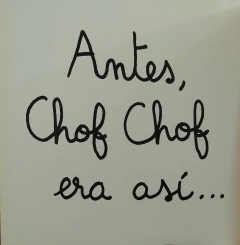 Antes,
Chof Chof
era así...